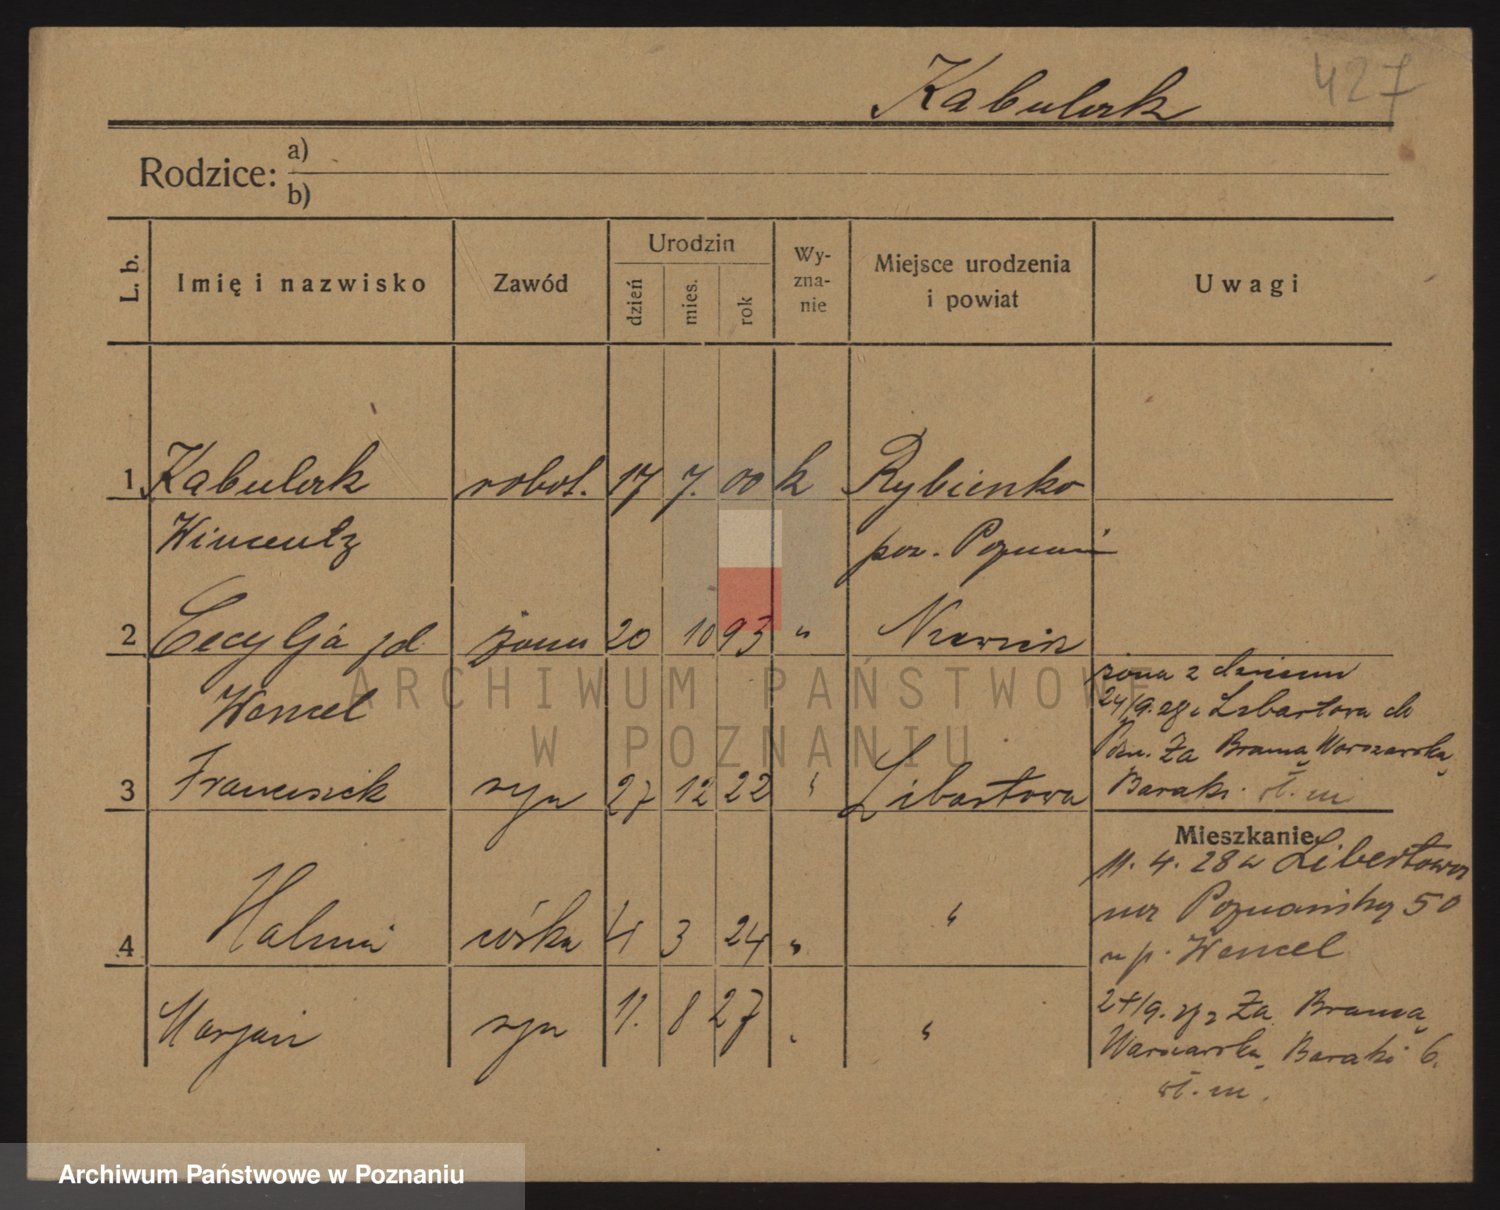 427
Kabulak
Rodzice: a)
b)
L. b. Imię i nazwisko Zawód Urodzin dzień mies. rok Wy-zna-nie Miejsce urodzenia i powiat Uwagi
1 Kabulak robot. 17 7. 00 k Rybienko
Wincenty Poznań
2 Cecylja żona 20 10 93 "
Wencel
żona z
24/9. Libartowa do
3 Franciszek syn 27 12 22 " Libartowa
Pozn. Za Bramą Warszawską
Baraki
Mieszkanie
4 Halina córka 4 3 24 " "
11. 4. 28 Libertowo
Poznańską 50
u p. Wencel
Marjan syn 11. 8 27 " "
24/9. Za Bramą
Warszawską Baraki 6.
ARCHIWUM PAŃSTWOWE
W POZNANIU
Archiwum Państwowe w Poznaniu